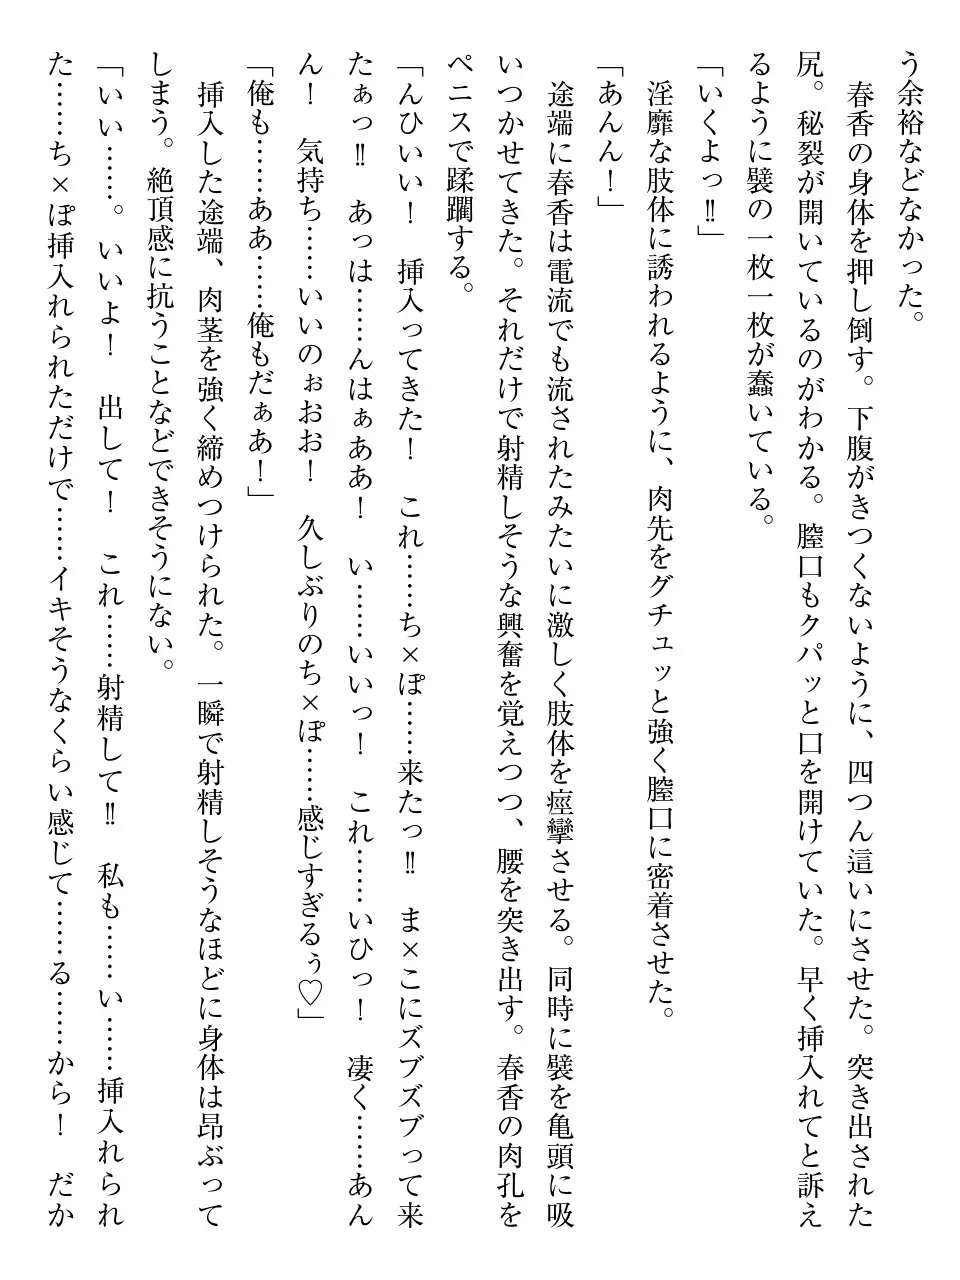 う余裕などなかった。
　春香の身体を押し倒す。下腹がきつくないように、四つん這いにさせた。突き出された
尻。秘裂が開いているのがわかる。膣口もクパッと口を開けていた。早く挿入れてと訴え
るように襞の一枚一枚が蠢いている。
「いくよっ‼」
　淫靡な肢体に誘われるように、肉先をグチュッと強く膣口に密着させた。
「あんん！」
　途端に春香は電流でも流されたみたいに激しく肢体を痙攣させる。同時に襞を亀頭に吸
いつかせてきた。それだけで射精しそうな興奮を覚えつつ、腰を突き出す。春香の肉孔を
ペニスで蹂躙する。
「んひいい！　挿入ってきた！　これ……ち×ぽ……来たっ‼　ま×こにズブズブって来
たぁっ‼　あっは……んはぁああ！　い……いいっ！　これ……いひっ！　凄く……あん
ん！　気持ち……いいのぉおお！　久しぶりのち×ぽ……感じすぎるぅ♡」
「俺も……ああ……俺もだぁあ！」
　挿入した途端、肉茎を強く締めつけられた。一瞬で射精しそうなほどに身体は昂ぶって
しまう。絶頂感に抗うことなどできそうにない。
「いい……。いいよ！　出して！　これ……射精して‼　私も……い……挿入れられ
た……ち×ぽ挿入れられただけで……イキそうなくらい感じて……る……から！　だか